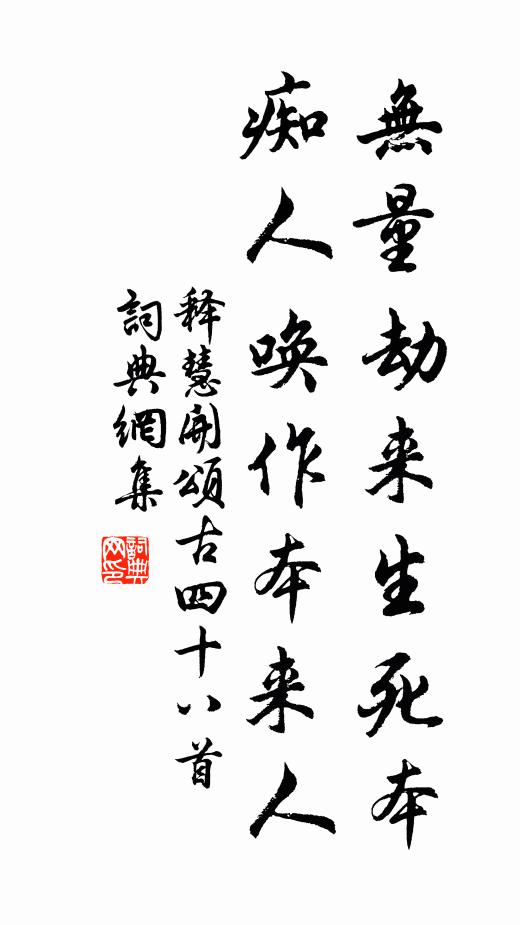 無量劫来生死本
痴人唤作本来人
释慧開頌古四十八首
詞典網集
詞典网印